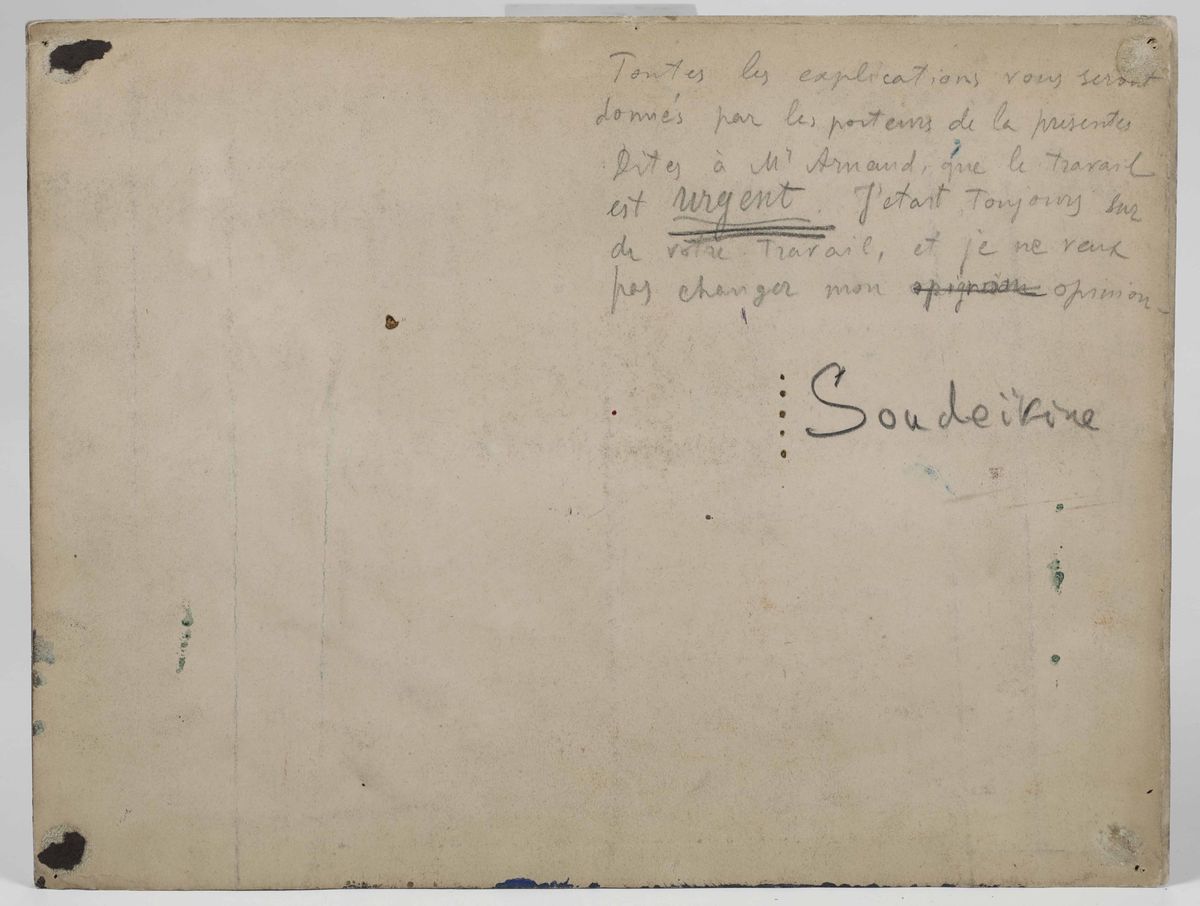 Toutes les explications vous seront
donnés par les porteurs de la présentes
Dites à Mr Arnaud, que le travail
est urgent. J'etait toujours sur
de votre travail, et je ne veux
pas changer mon opignion opinion
Soudeïkine